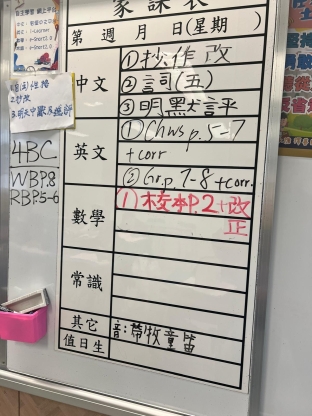 家課表
第 週 月 日(星期 )
中文
①抄作改
②言司(五)
③明黑犬言平
英文
①Chws p.5-7
+corr
②Gr.p.7-8 +corr.
數學
①校本P.2+改
正
常識
其它
音:帶牧童笛
值日生
4BC
WBP.8
RBP.5-6